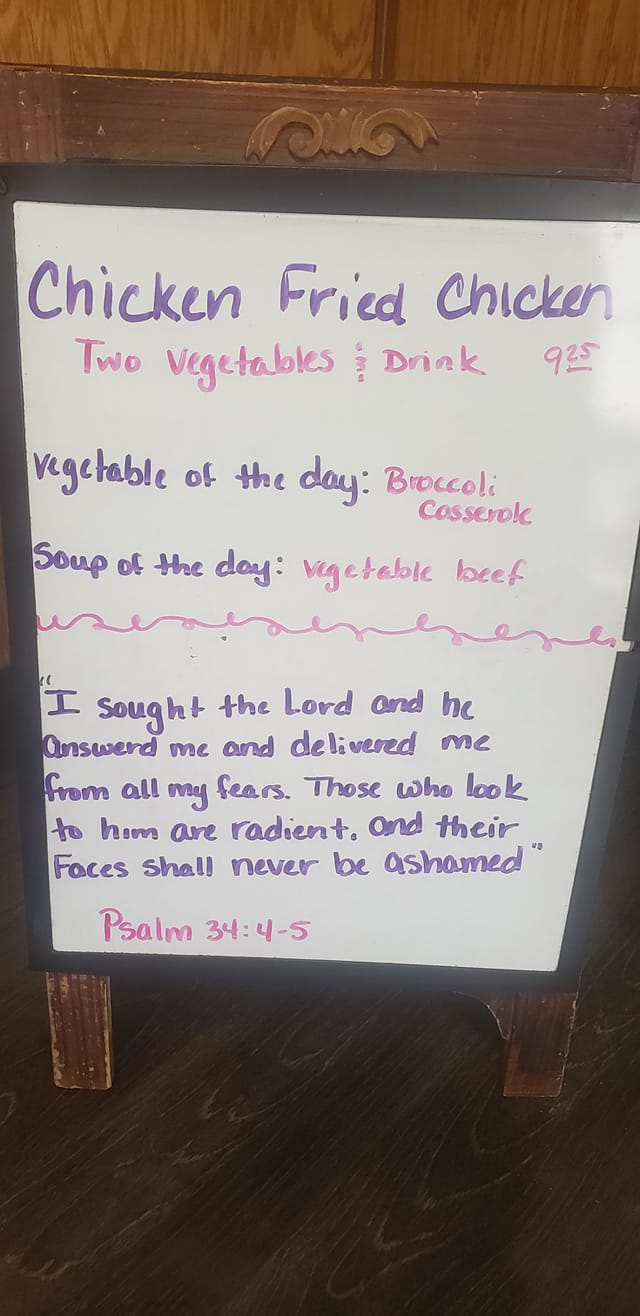 Chicken Fried Chicken
Two Vegetables & Drink 9.25
Vegetable of the day: Broccoli
Casserole
Soup of the day: vegetable beef
"I sought the Lord and he
answerd me and delivered me
from all my fears. Those who look
to him are radient. and their
Faces shall never be ashamed"
Psalm 34:4-5